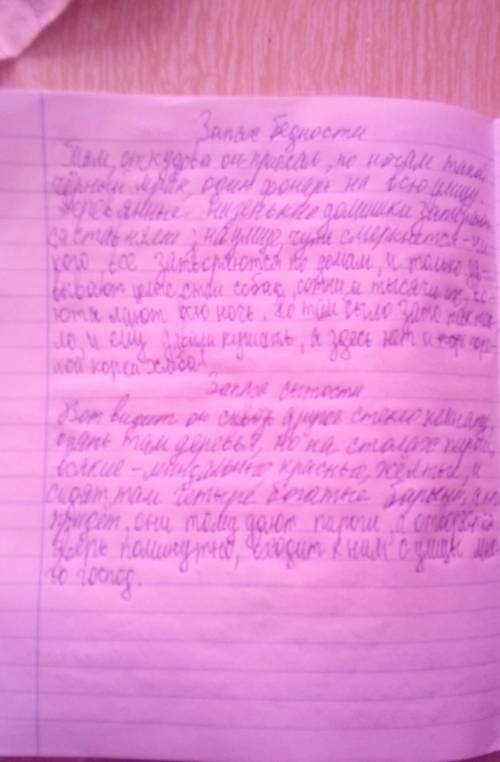 Запах бедности
Там, откудова он приехал, по ночам такой
чёрный мрак, один фонарь на всю улицу.
Деревянные низенькие домишки запираются
ставнями; на улице, чуть смеркнется - ни-
кого, все затворяются по домам, и только за-
вывают целые стаи собак, сотни и тысячи их, во-
ют и лают всю ночь. Но там было зато так теп-
ло, и ему давали кушать, а здесь нет и
корки хлеба.
Запах сытости
Вот видит он сквозь другое стекло комнату,
опять там деревья, но на столах пироги,
всякие - миндальные, красные, жёлтые, и
сидят там четыре богатые барыни, а кто
придёт, они тому дают пироги, а отворяется
дверь поминутно, входит к ним с улицы мно-
го господ.